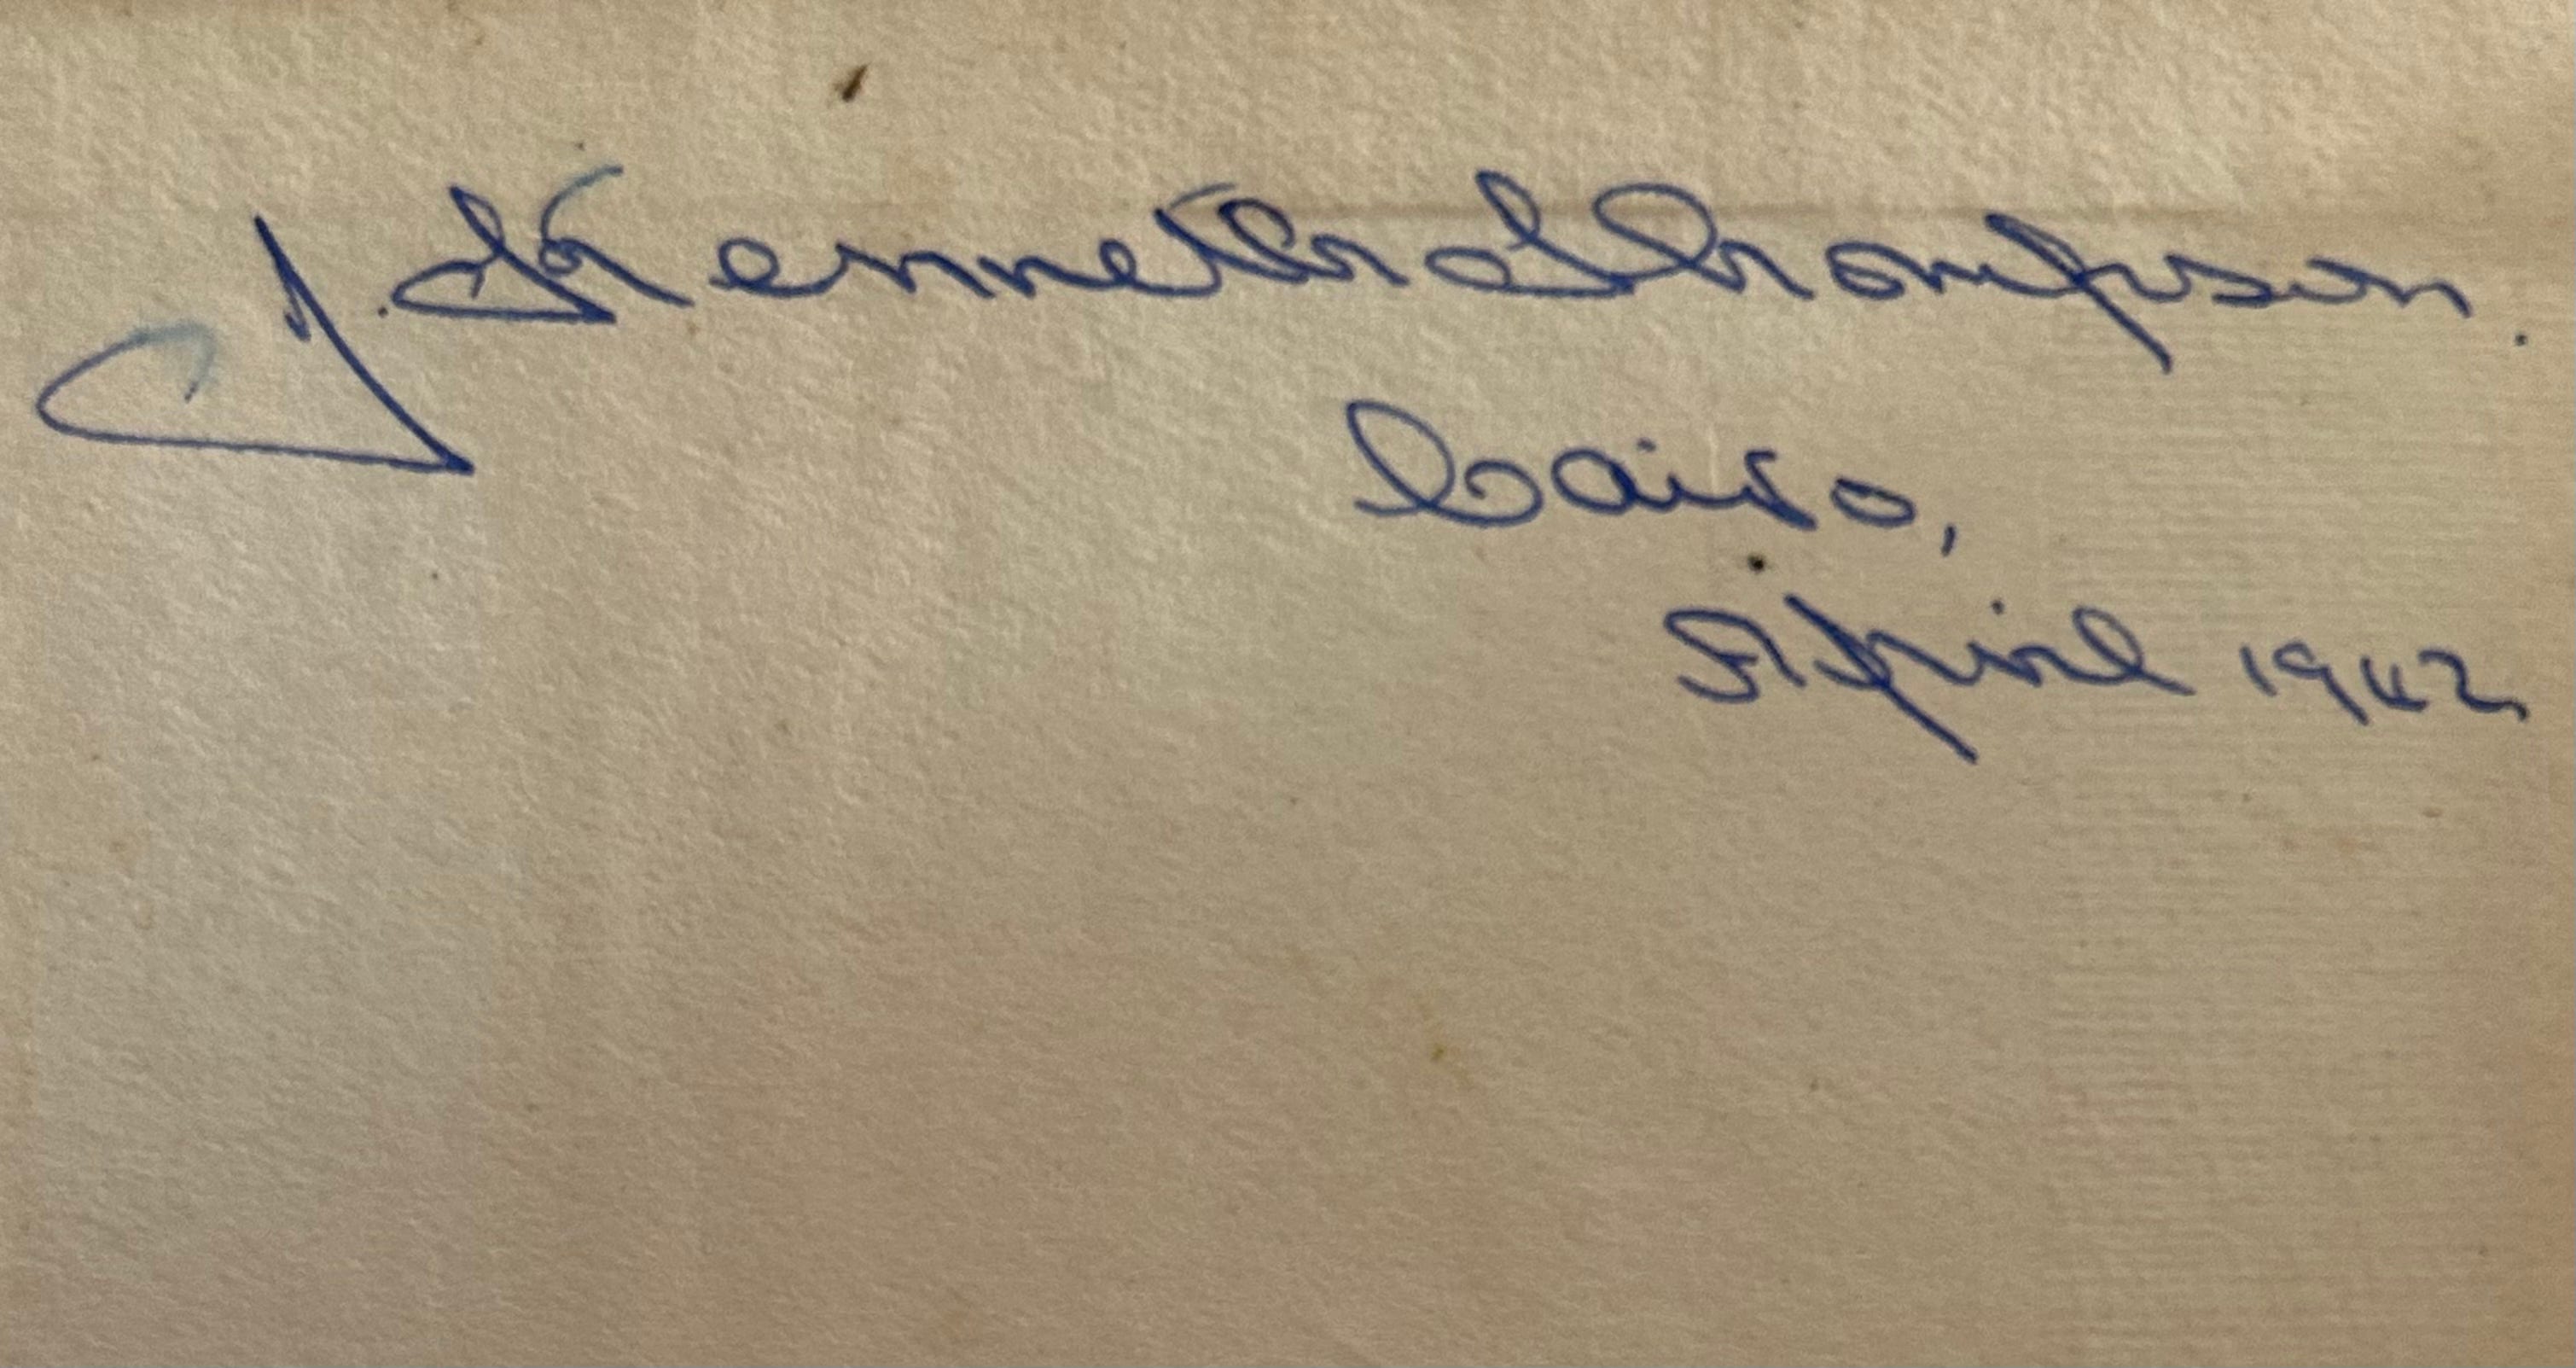 J. Kenneth Thompson.
Cairo,
April 1942